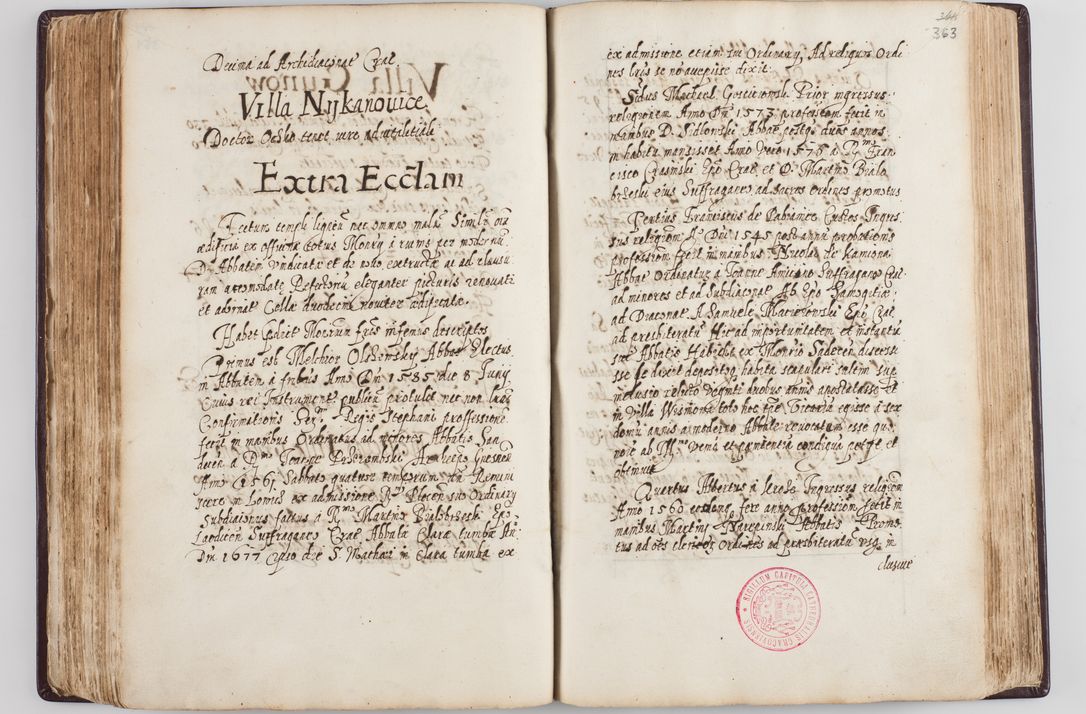 Decima ad Archidiaconat Crac
Villa Nijkanouice
Doctor Ocsko tenet vere
Extra Ecclam
Tectum templi ligneu nec omnino malu Simlr oia
ædificia ex officinæ totius Monrij à ruinis per modernu
D. Abbatem vndicatæ et de nouo extructæ ac ad clausu
ram accomodatæ Refectoriu eleganter picturis renouatu
et adornat Cellæ duodecim nouiter ædificatæ.
Habet hoc Monriun fres infrius descriptos
Primus est Melchior Olszewsky Abbas Electus
in Abbatem à fribus Anno Dni 1585 die 8 Juny
Cuius rei Instrument publicu protulit nec non lras
Confirmationis Sermi Regis Stephani proffessione
fecit in manibus Ordinatus ad minores Abbatis San
decen à Rmo
Anno 1561 Sabbato quatuor temporum in Remini
scere in Lowicz ex admissione Rmi Plocen sui Ordinary
Subdiaconus factus à Rmo Martino Bialobrzeski Epo
Laodicen Suffraganeo Crac Abbate Claræ tumbæ An
Dni 1577 ipso die S. Mathæi in Clara tumba ex
363
ex admissione etiam sui Ordinary, Ad reliquos Ordi
nes lras se no accepisse dixit.
Sidus Machæl Gosciewowski Prior ingressus
religionem Anno Dni 1573 professiom fecit in
manibus D. Sidlowski Abbae postq duos annos
in habitu mansisset Anno Vero 1575 à Rmo Fran
cisco Crasinski Epo Crac et D. Martino Bialo
brzeski eius Suffraganeo ad sacros ordines promotus
Tertius Franciscus de Pabianice Custos Ingres
sus religionem Ao Dni 1545 post annu probationis
professiom fecit in manibus Nicolai de Kamiona
Abbae Ordinatus à Joanne Amiciano Suffraganeo Crac
ad minores et ad Subdiaconat Ab Epo Samogitiæ
ad Diaconat A Samuele Macieiowski Epo Crac
ad præsbiteratu Hic ad importunitatem et instantiu
suæ Abbatis Habicht ex Monrio Sadecen discessu
se dicit deposito habitu sæculari saltem sup
indusio relicto Vegniti duobus annis apostatasse Et
in Villa Wismona toto hoc tpe Vicariu egisse à sex
domu annis a moderno Abbate reuocatum esse quo
nore ab Illmo Veniu et condigna petyt et
obtinuit
Quartus Albertus à Ingressus religiom
Anno 1560 fere anno professiom fecit in
manibus Martiny Abbatis Promo
tus ad oes Ordines ad præsbiteratu vsq in
clusiue
SIGILLUM CAPITULI CATHEDRALIS CRACOVIENSIS